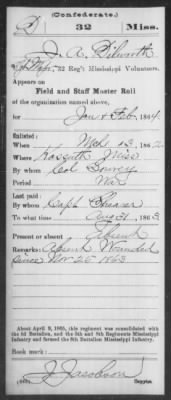 (Confederate.)
D 32 Miss.
J. A. Dilworth
, 32 Reg't Mississippi Volunteers.
Appears on
Field and Staff Muster Roll
of the organization named above,
for Jan & Feb, 1864.
Enlisted:
When Mch 13, 1862
Where Kossuth Miss
By whom Col Lowrey
Period War
Last paid:
By whom Capt
To what time Aug 31, 1863
Present or absent Absent
Remarks: Absent Wounded
since Nov 25 1863
About April 9, 1865, this regiment was consolidated with
the 5th and 8th Regiments Mississippi
Infantry and formed the 8th Battalion Mississippi Infantry.
Book mark:
J. Jacobson
Copyist.